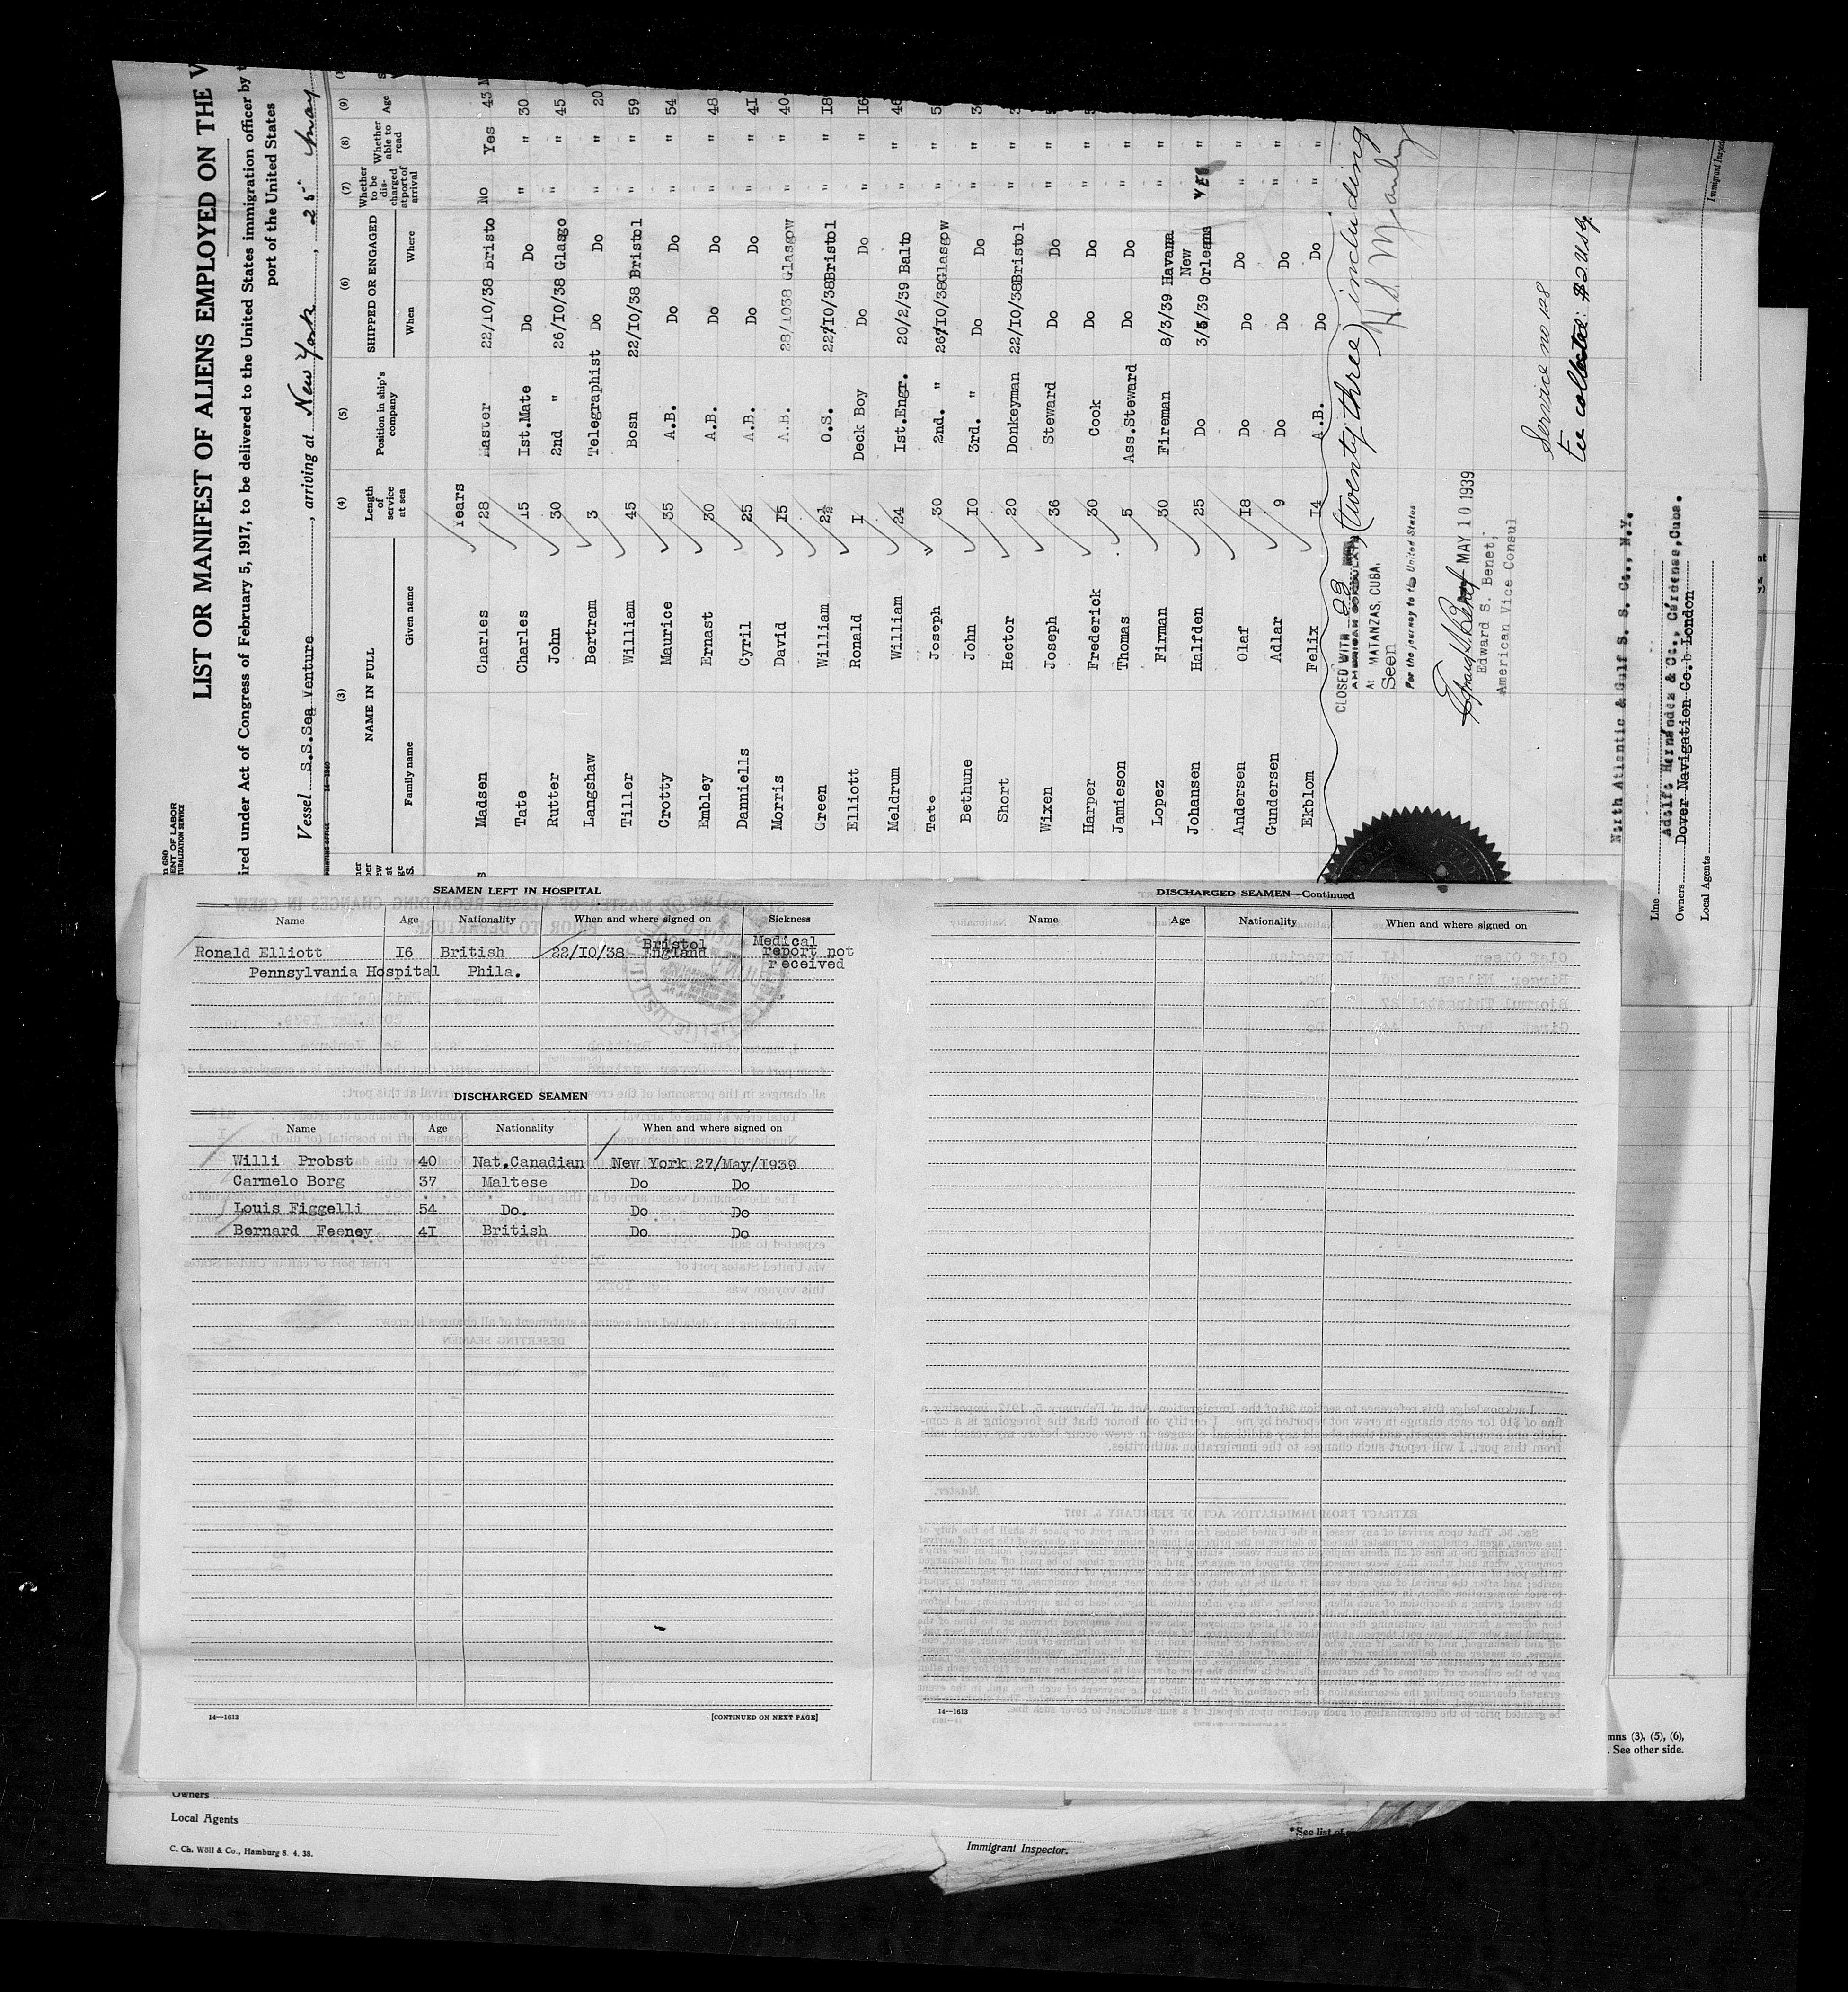 LIST OR MANIFEST OF ALIENS EMPLOYED ON THE V
ired under Act of Congress of February 5, 1917, to be delivered to the United States immigration officer by t
port of the United States
Vessel S.S.Sea Venture, arriving at New York, 25 May
(3) (4) (5) (6) (7) (8) (9)
NAME IN FULL Length of service at sea Position in ship's company SHIPPED OR ENGAGED Whether to be discharged at port of arrival Whether able to read Age
Family name Given name When Where
Years
Madsen Charles 28 Master 22/10/38 Bristo No Yes 43
Tate Charles 15 Ist.Mate Do Do " " 30
Rutter John 30 2nd " 26/IO/38 Glasgo " " 45
Langshaw Bertram 3 Telegraphist Do Do " " 20
Tiller William 45 Bosn 22/IO/38 Bristol " " 59
Crotty Maurice 35 A.B. Do Do " " 54
Embley Ernast 30 A.B. Do Do " " 48
Danniells Cyril 25 A.B. Do Do " " 4I
Morris David I5 A.B. 28/1038 Glasgow " " 40
Green William 2½ O.S. 22/IO/38Bristol " " I8
Elliott Ronald I Deck Boy Do Do " " I6
Meldrum William 24 Ist.Engr. 20/2/39 Balto " "
Tate Joseph 30 2nd. " 26/IO/38Glasgow " "
Bethune John IO 3rd. " Do Do " "
Short Hector 20 Donkeyman 22/IO/38Bristol " "
Wixen Joseph 36 Steward Do Do " "
Harper Frederick 30 Cook Do Do " "
Jamieson Thomas 5 Ass.Steward Do Do " "
Lopez Firman 30 Fireman 8/3/39 Havana " "
Johansen Halfden 25 Do 3/5/39 New Orleans YES "
Andersen Olaf I8 Do Do Do " "
Gundersen Adlar 9 Do Do Do " "
Ekblom Felix I4 A.B. Do Do " "
CLOSED WITH 23 (twenty three) including
AMERICAN CONSULATE
At MATANZAS, CUBA,
Seen
For the journey to the United States
MAY 10 1939
Edward S. Benet,
American Vice Consul
Service no 128
Fee collected: $2 U.S.G.
North Atlantic & Gulf S. S. Co., N.Y.
Line
Adolfo Hernández & Co., Cárdenas,Cuba.
Owners Dover Navigation Co. London
Local Agents
Immigrant Inspec
SEAMEN LEFT IN HOSPITAL
Name Age Nationality When and where signed on Sickness
Ronald Elliott I6 British 22/IO/38 Bristol England Medical report not received
Pennsylvania Hospital Phila.
DISCHARGED SEAMEN
Name Age Nationality When and where signed on
Willi Probst 40 Nat.Canadian New York 27/May/I939
Carmelo Borg 37 Maltese Do Do
Louis Figgelli 54 Do. Do Do
Bernard Feeney 4I British Do Do
14—1613 [CONTINUED ON NEXT PAGE]
DISCHARGED SEAMEN—Continued
Name Age Nationality When and where signed on
14—1613
mns (3), (5), (6),
. See other side.
Owners
Local Agents
C. Ch. Wöll & Co., Hamburg 8. 4. 38.
Immigrant Inspector.
*See list of